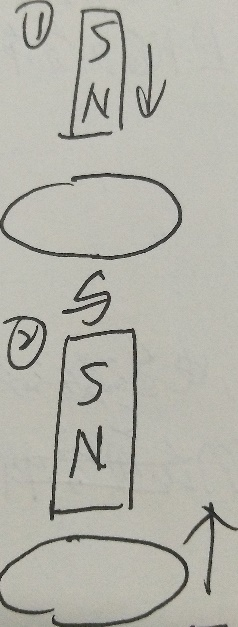 ①
S
N
②
S
N